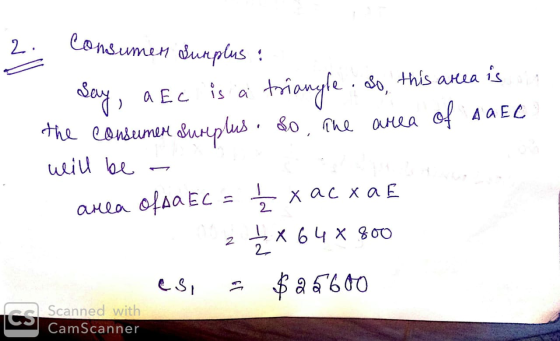 2. Consumer Surplus :
Say, aEc is a triangle. So, this area is
the consumer surplus. So, The area of ΔaEC
will be —
area of ΔaEC = 1/2 × ac × aE
= 1/2 × 64 × 800
CS₁ = $25600
CS Scanned with
CamScanner